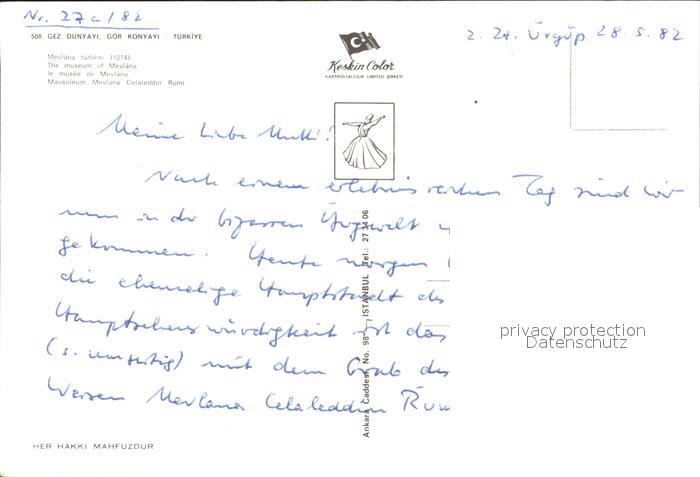 Nr. 27a/82
508. GEZ DÜNYAYI, GÖR KONYAYI - TÜRKİYE
Mevlâna türbesi (1274)
The museum of Mevlâna
le musée de Mevlâna
Mausoleum Mevlana Celâleddin Rumi
Keskin Color
KARTPOSTALCILIK LIMITED ŞİRKETİ
z. Zt. Ürgüp 28. 5. 82
Meine liebe Mutti!
Nach einem erlebnisreichen Tag sind wir
nun in der bizarren
gekommen. Heute morgen
die ehemalige Hauptstadt des
Hauptsehenswürdigkeit ist das
(s. umseitig) mit dem Grab des
Weisen Mevlana Celaleddin Rum
Ankara Caddesi, No. 98 - İSTANBUL Tel.: 27 34 06
privacy protection
Datenschutz
HER HAKKI MAHFUZDUR